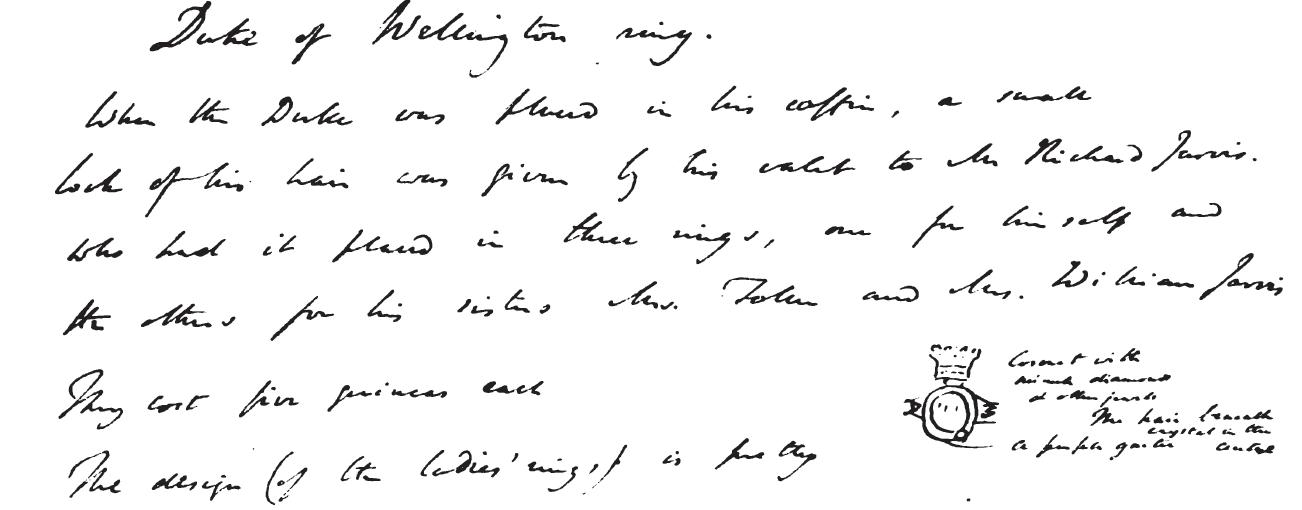 Duke of Wellington ring.
When the Duke was placed in his coffin, a small
lock of his hair was given by his valet to Mr Richard Jarvis.
who had it placed in three rings, one for himself and
the others for his sisters Mrs. and Mrs. William Jarvis
They cost five guineas each
The design (of the ladies' rings) is pretty
Coronet with
minute diamonds
& other jewels
The hair beneath
crystal in the
centre
a purple garter